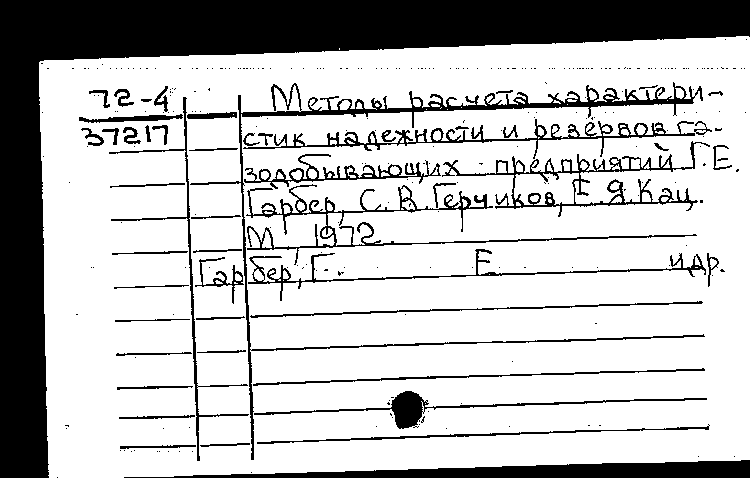 72-4
37217
Методы расчета характери-
стик надежности и резервов га-
зодобывающих предприятий Г.Е.
Гарбер, С.В.Герчиков, Е.Я.Кац.
М., 1972.
Гарбер, Г. Е. и др.